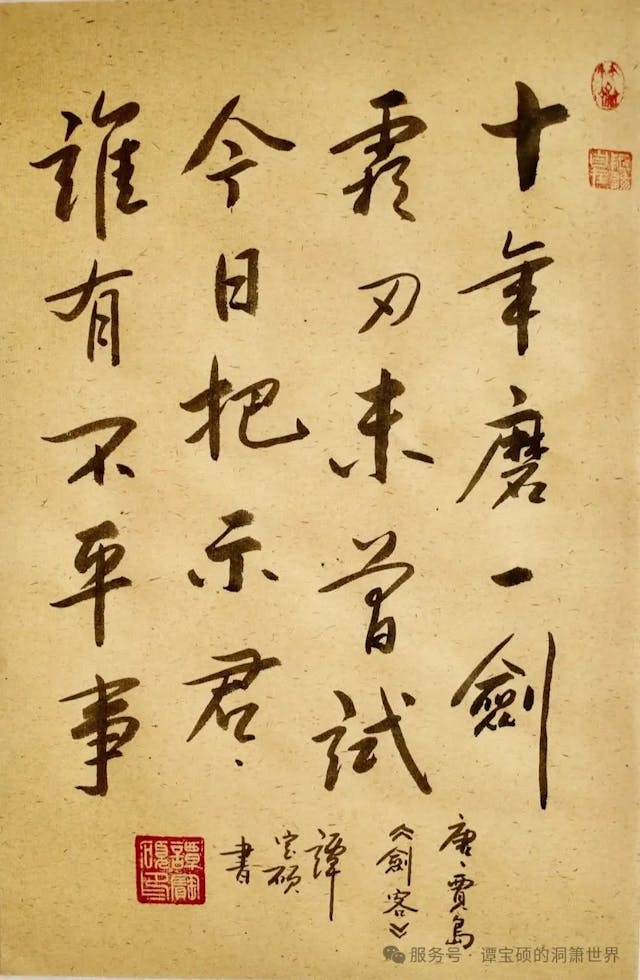 十年磨一劍
霜刃未曾試
今日把示君
誰有不平事
唐、賈島
《劍客》
譚
宝硕
書
譚寶碩印
服务号 · 谭宝硕的洞箫世界